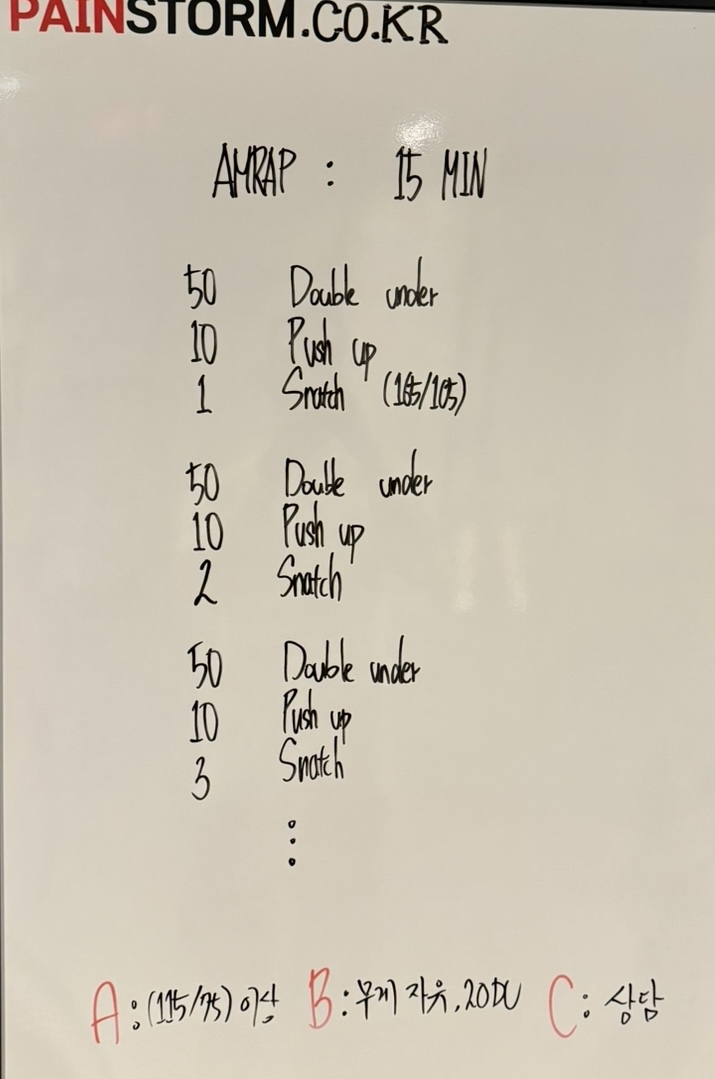 PAINSTORM.CO.KR
AMRAP : 15 MIN
50 Double under
10 Push up
1 Snatch (165/105)
50 Double under
10 Push up
2 Snatch
50 Double under
10 Push up
3 Snatch
⋮
A : (115/75) 이상 B : 무게 자유, 20DU C : 상담